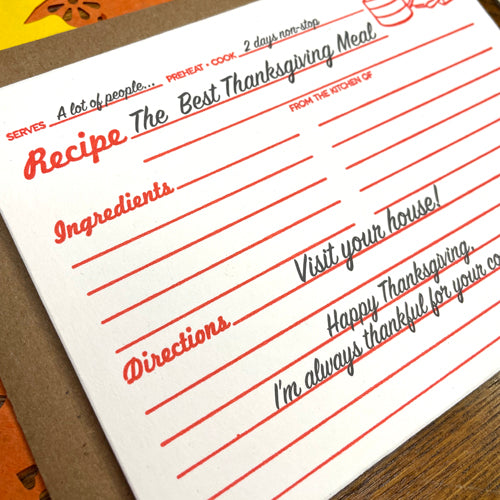 SERVES A lot of people... PREHEAT • COOK 2 days non-stop
Recipe The Best Thanksgiving Meal
FROM THE KITCHEN OF
Ingredients
Visit your house!
Directions
Happy Thanksgiving,
I'm always thankful for your